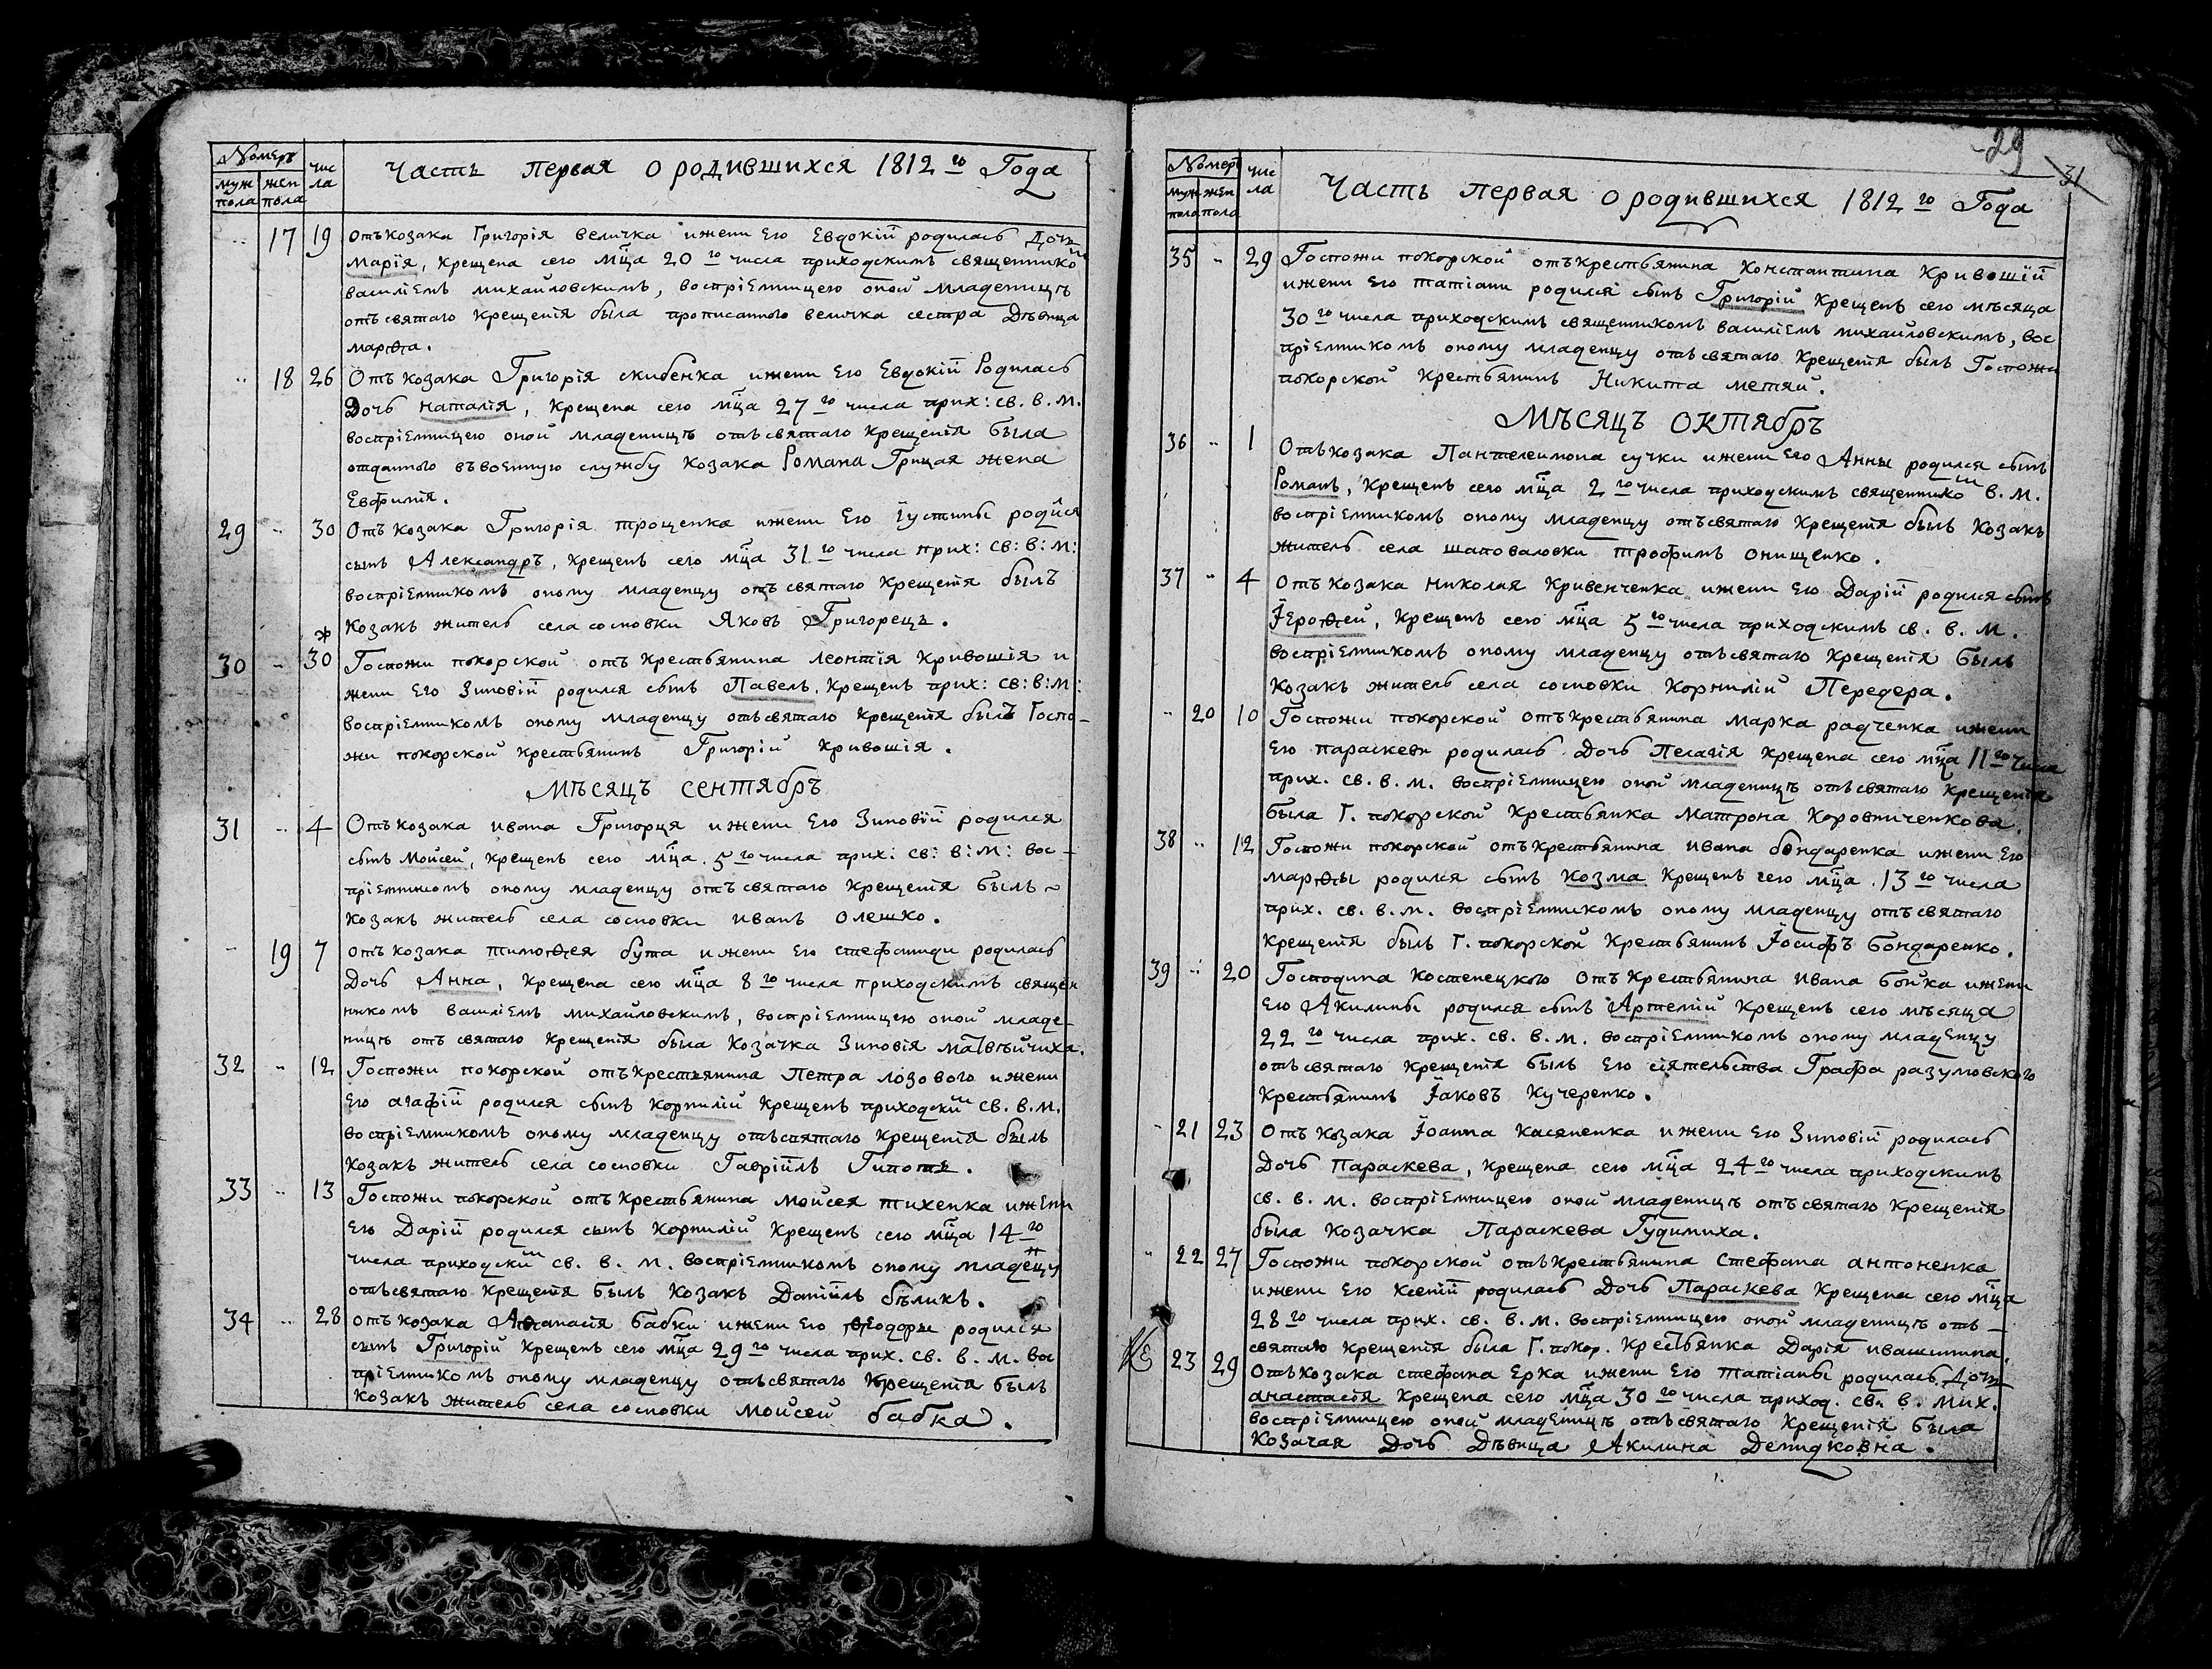 Номеръ
чис
ла
муж
пола
жен
пола
Часть первая о родившихся 1812го Года
17 19 отъ козака Григорія величка ижени Его Евдокіи родилась Дочь
Марія, крещена сего мца 20го числа приходскимъ священнико
василіемъ михайловскимъ, воспріемницею оной младеницѣ
отъ святаго крещенія была прописанного величка сестра Дѣвица
марѳа.
18 26 Отъ козака Григорія скибенка ижени Его Евдокіи Родилась
Дочь наталія, крещена сего мца 27го числа прих: св. в. м.
воспріемницею оной младеницѣ отъ святаго крещенія была
отданного въ военную службу козака Романа Грицая жена
Евфимія.
29 30 Отъ козака Григорія трощенка ижени Его іустины родился
сынъ Александръ, крещенъ сего мца 31го числа прих: св: в: м:
воспріемникомъ оному младенцу отъ святаго крещенія былъ
козакъ житель села сосновки Яковъ Григорець.
30 30 Госпожи покорской отъ крестьянина леонтія кривошія и
жени Его Зиновіи родился сынъ Павелъ, крещенъ прих: св: в: м:
воспріемникомъ оному младенцу отъ святаго крещенія былъ Госпо-
жи покорской крестьянинъ Григорій кривошія.
Мѣсяцъ сентябрь
31 4 Отъ козака ивана Григорця ижени Его Зиновіи родился
сынъ Моисей, крещенъ сего мца 5го числа прих: св: в: м: вос-
пріемникомъ оному младенцу отъ святаго крещенія былъ
козакъ житель села сосновки иванъ олешко.
19 7 отъ козака тимоѳея бута ижени Его стефаниди родилась
Дочь Анна, крещена сего мца 8го числа приходскимъ священ
никомъ василіемъ михайловскимъ, воспріемницею оной младе-
ницѣ отъ святаго крещенія была козачка Зиновія матвѣичиха.
32 12 Госпожи покорской отъ крестьянина Петра лозового ижени
Его агафіи родился сынъ корнилій крещенъ приходскимъ св. в. м.
воспріемникомъ оному младенцу отъ святаго крещенія былъ
козакъ житель села сосновки Гавріилъ
33 13 Госпожи покорской отъ крестьянина моисея тихенка ижени
Его Даріи родился сынъ корнилій крещенъ сего мца 14го
числа приходскимъ св. в. м. воспріемникомъ оному младенцу
отъ святаго крещенія былъ козакъ Даніилъ бѣликъ.
34 28 отъ козака Аѳанасія бабки ижени Его ѳеодоры родился
сынъ Григорій крещенъ сего мца 29го числа прих. св. в. м. вос
пріемникомъ оному младенцу отъ святаго крещенія былъ
козакъ житель села сосновки моисей бабка.
29
31
Номеръ
чис
ла
муж
пола
жен
пола
Часть первая о родившихся 1812го Года
35 29 Госпожи покорской отъ крестьянина константина кривошіи
ижени Его татіани родился сынъ Григорій крещенъ сего мѣсяца
30го числа приходскимъ священникомъ василіемъ михайловскимъ, вос
пріемникомъ оному младенцу отъ святаго крещенія былъ Госпожи
покорской крестьянинъ Никита метяй.
Мѣсяцъ октябрь
36 1 Отъ козака Пантелеимона сучки ижени Его Анны родился сынъ
Романъ, крещенъ сего мца 2го числа приходскимъ священнико в. м.
воспріемникомъ оному младенцу отъ святаго крещенія былъ козакъ
житель села шаповаловки трофимъ онищенко.
37 4 отъ козака николая кривенченка ижени Его Даріи родился сынъ
Іероѳей, крещенъ сего мца 5го числа приходскимъ св. в. м.
воспріемникомъ оному младенцу отъ святаго крещенія былъ
козакъ житель села сосновки корнилій Передера.
20 10 Госпожи покорской отъ крестьянина марка радченка ижени
Его параскеви родилась Дочь Пелагія крещена сего мца 11го числа
прих. св. в. м. воспріемницею оной младеницѣ отъ святаго крещенія
была Г. покорской крестьянка матрона коровниченкова.
38 12 Госпожи покорской отъ крестьянина ивана бондаренка ижени Его
марѳы родился сынъ козма крещенъ сего мца 13го числа
прих. св. в. м. воспріемникомъ оному младенцу отъ святаго
крещенія былъ Г. покорской крестьянинъ Іосифъ бондаренко.
39 20 Господина костенецкого отъ крестьянина ивана бойка ижени
Его Акилины родился сынъ Артемій крещенъ сего мѣсяца
22го числа прих. св. в. м. воспріемникомъ оному младенцу
отъ святаго крещенія былъ Его сіятельства Графа разумовского
крестьянинъ Іаковъ кучеренко.
21 23 отъ козака Іоанна касяненка ижени Его Зиновіи родилась
Дочь Параскева, крещена сего мца 24го числа приходскимъ
св. в. м. воспріемницею оной младеницѣ отъ святаго крещенія
была козачка Параскева Гудимиха.
22 27 Госпожи покорской отъ крестьянина стефана антоненка
ижени Его ксеніи родилась Дочь Параскева крещена сего мца
28го числа прих. св. в. м. воспріемницею оной младеницѣ отъ -
святаго крещенія была Г. покор. крестьянка Дарія ивашинина.
23 29 отъ козака стефана Ерка ижени Его татіаны родилась Дочь
анастасія крещена сего мца 30го числа приход. св. в. мих.
воспріемницею оной младеницѣ отъ святаго крещенія была
козачая Дочь Дѣвица Акилина Демидковна.